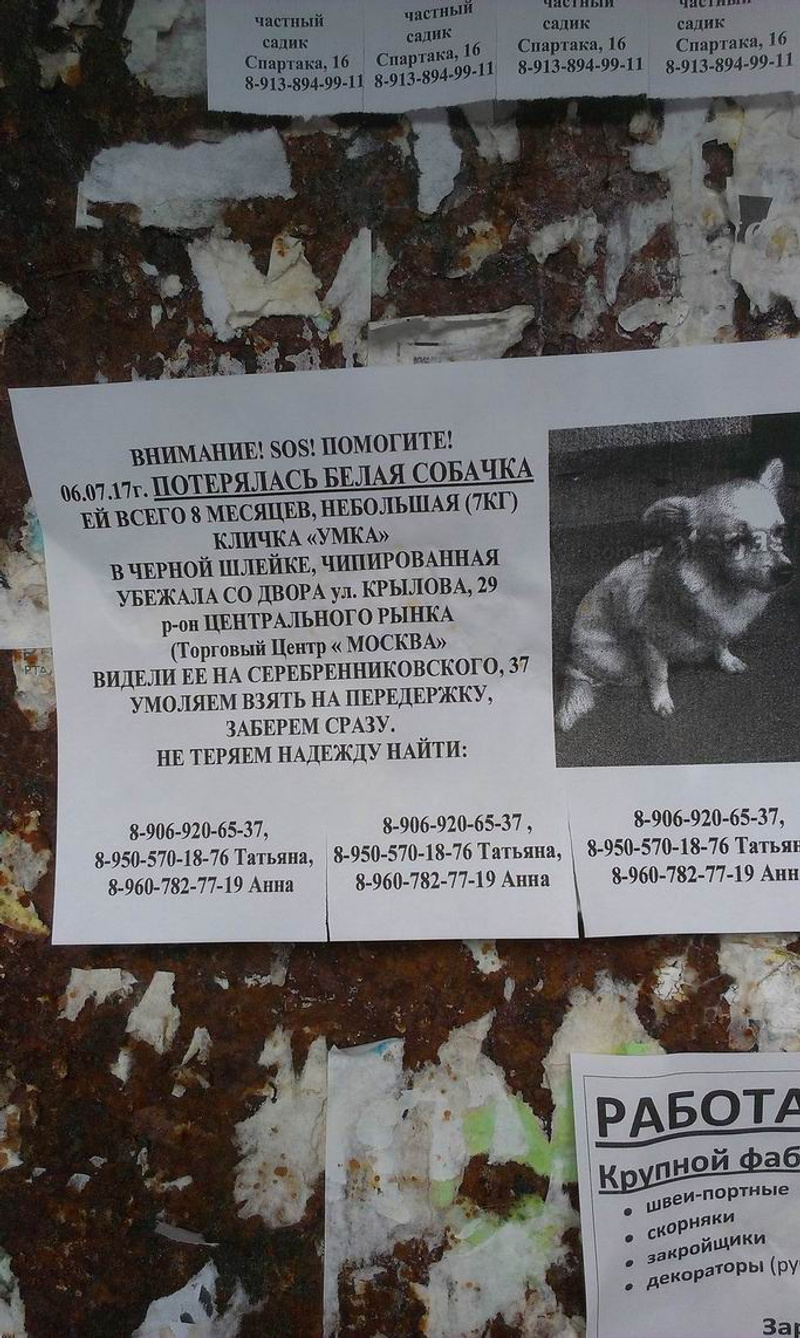 частный
садик
Спартака, 16
8-913-894-99-11
частный
садик
Спартака, 16
8-913-894-99-11
частный
садик
Спартака, 16
8-913-894-99-11
частный
садик
Спартака, 16
8-913-894-99-11
ВНИМАНИЕ! SOS! ПОМОГИТЕ!
06.07.17г. ПОТЕРЯЛАСЬ БЕЛАЯ СОБАЧКА
ЕЙ ВСЕГО 8 МЕСЯЦЕВ, НЕБОЛЬШАЯ (7КГ)
КЛИЧКА «УМКА»
В ЧЕРНОЙ ШЛЕЙКЕ, ЧИПИРОВАННАЯ
УБЕЖАЛА СО ДВОРА ул. КРЫЛОВА, 29
р-он ЦЕНТРАЛЬНОГО РЫНКА
(Торговый Центр « МОСКВА»
ВИДЕЛИ ЕЕ НА СЕРЕБРЕННИКОВСКОГО, 37
УМОЛЯЕМ ВЗЯТЬ НА ПЕРЕДЕРЖКУ,
ЗАБЕРЕМ СРАЗУ.
НЕ ТЕРЯЕМ НАДЕЖДУ НАЙТИ:
8-906-920-65-37,
8-950-570-18-76 Татьяна,
8-960-782-77-19 Анна
8-906-920-65-37 ,
8-950-570-18-76 Татьяна,
8-960-782-77-19 Анна
8-906-920-65-37,
8-950-570-18-76 Татьян
8-960-782-77-19 Анн
РАБОТА
Крупной фаб
• швеи-портные
• скорняки
• закройщики
• декораторы (ру
Зар